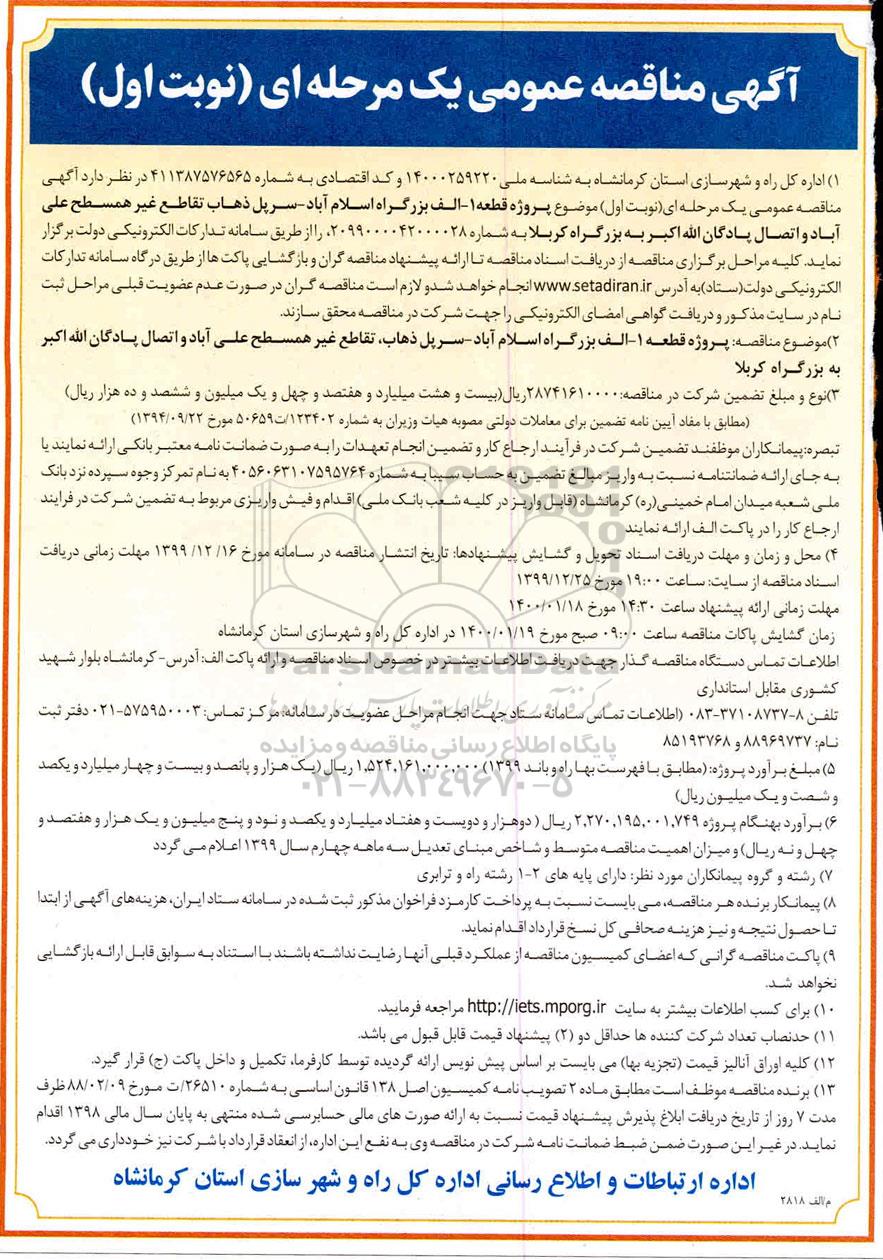 آگهی مناقصه عمومی یک مرحله ای (نوبت اول)
۱) اداره کل راه و شهرسازی استان کرمانشاه به شناسه ملی ۱۴۰۰۰۲۵۹۲۲۰ و کد اقتصادی به شماره ۴۱۱۳۸۷۵۷۶۵۶۵ در نظر دارد آگهی
مناقصه عمومی یک مرحله ای(نوبت اول) موضوع پروژه قطعه۱-الف بزرگراه اسلام آباد-سرپل ذهاب تقاطع غیر همسطح علی
آباد و اتصال پادگان الله اکبر به بزرگراه کربلا به شماره ۲۰۹۹۰۰۰۰۴۲۰۰۰۰۲۸، را از طریق سامانه تدارکات الکترونیکی دولت برگزار
نماید. کلیه مراحل برگزاری مناقصه از دریافت اسناد مناقصه تا ارائه پیشنهاد مناقصه گران و بازگشایی پاکت ها از طریق درگاه سامانه تدارکات
الکترونیکی دولت(ستاد)به آدرس www.setadiran.ir انجام خواهد شدو لازم است مناقصه گران در صورت عدم عضویت قبلی مراحل ثبت
نام در سایت مذکور و دریافت گواهی امضای الکترونیکی را جهت شرکت در مناقصه محقق سازند.
۲)موضوع مناقصه: پروژه قطعه ۱-الف بزرگراه اسلام آباد-سرپل ذهاب، تقاطع غیر همسطح علی آباد و اتصال پادگان الله اکبر
به بزرگراه کربلا
۳)نوع و مبلغ تضمین شرکت در مناقصه:۲۸۷۴۱۶۱۰۰۰۰ریال(بیست و هشت میلیارد و هفتصد و چهل و یک میلیون و ششصد و ده هزار ریال)
(مطابق با مفاد آیین نامه تضمین برای معاملات دولتی مصوبه هیات وزیران به شماره ۱۲۳۴۰۲/ت۵۰۶۵۹ مورخ ۱۳۹۴/۰۹/۲۲)
تبصره:پیمانکاران موظفند تضمین شرکت در فرآیند ارجاع کار و تضمین انجام تعهدات را به صورت ضمانت نامه معتبر بانکی ارائه نمایند یا
به جای ارائه ضمانتنامه نسبت به واریز مبالغ تضمین به حساب سیبا به شماره ۴۰۵۶۰۶۳۱۰۷۵۹۵۷۶۴ به نام تمرکز وجوه سپرده نزد بانک
ملی شعبه میدان امام خمینی(ره) کرمانشاه (قابل واریز در کلیه شعب بانک ملی) اقدام و فیش واریزی مربوط به تضمین شرکت در فرایند
ارجاع کار را در پاکت الف ارائه نمایند
۴) محل و زمان و مهلت دریافت اسناد تحویل و گشایش پیشنهادها: تاریخ انتشار مناقصه در سامانه مورخ ۱۶/ ۱۲/ ۱۳۹۹ مهلت زمانی دریافت
اسناد مناقصه از سایت: ساعت ۱۹:۰۰ مورخ ۱۳۹۹/۱۲/۲۵
مهلت زمانی ارائه پیشنهاد ساعت ۱۴:۳۰ مورخ ۱۴۰۰/۰۱/۱۸
زمان گشایش پاکات مناقصه ساعت ۰۹:۰۰ صبح مورخ ۱۴۰۰/۰۱/۱۹ در اداره کل راه و شهرسازی استان کرمانشاه
ParsNamadData
اطلاعات تماس دستگاه مناقصه گذار جهت دریافت اطلاعات بیشتر در خصوص اسناد مناقصه و ارائه پاکت الف: آدرس- کرمانشاه بلوار شهید
کشوری مقابل استانداری
تلفن ۸-۳۷۱۰۸۷۳۷-۰۸۳ (اطلاعات تماس سامانه ستاد جهت انجام مراحل عضویت در سامانه: مرکز تماس: ۵۷۵۹۵۰۰۰۳-۰۲۱ دفتر ثبت
نام: ۸۸۹۶۹۷۳۷ و ۸۵۱۹۳۷۶۸
پایگاه اطلاع رسانی مناقصه و مزایده
۵) مبلغ برآورد پروژه: (مطابق با فهرست بها راه و باند ۱۳۹۹) ۱,۵۲۴,۱۶۱,۰۰۰,۰۰۰ ریال (یک هزار و پانصد و بیست و چهار میلیارد و یکصد
و شصت و یک میلیون ریال)
۰۲۱-۸۸۳۴۹۶۷۰-۵
۶) برآورد بهنگام پروژه ۲,۲۷۰,۱۹۵,۰۰۱,۷۴۹ ریال ( دوهزار و دویست و هفتاد میلیارد و یکصد و نود و پنج میلیون و یک هزار و هفتصد و
چهل و نه ریال) و میزان اهمیت مناقصه متوسط و شاخص مبنای تعدیل سه ماهه چهارم سال ۱۳۹۹ اعلام می گردد
۷) رشته و گروه پیمانکاران مورد نظر: دارای پایه های ۲-۱ رشته راه و ترابری
۸) پیمانکار برنده هر مناقصه، می بایست نسبت به پرداخت کارمزد فراخوان مذکور ثبت شده در سامانه ستاد ایران، هزینه‌های آگهی از ابتدا
تا حصول نتیجه و نیز هزینه صحافی کل نسخ قرارداد اقدام نماید.
۹) پاکت مناقصه گرانی که اعضای کمیسیون مناقصه از عملکرد قبلی آنها رضایت نداشته باشند با استناد به سوابق قابل ارائه بازگشایی
نخواهد شد.
۱۰) برای کسب اطلاعات بیشتر به سایت http://iets.mporg.ir مراجعه فرمایید.
۱۱) حدنصاب تعداد شرکت کننده ها حداقل دو (۲) پیشنهاد قیمت قابل قبول می باشد.
۱۲) کلیه اوراق آنالیز قیمت (تجزیه بها) می بایست بر اساس پیش نویس ارائه گردیده توسط کارفرما، تکمیل و داخل پاکت (ج) قرار گیرد.
۱۳) برنده مناقصه موظف است مطابق ماده ۲ تصویب نامه کمیسیون اصل ۱۳۸ قانون اساسی به شماره ۲۶۵۱۰/ت مورخ ۸۸/۰۲/۰۹ ظرف
مدت ۷ روز از تاریخ دریافت ابلاغ پذیرش پیشنهاد قیمت نسبت به ارائه صورت های مالی حسابرسی شده منتهی به پایان سال مالی ۱۳۹۸ اقدام
نماید. در غیر این صورت ضمن ضبط ضمانت نامه شرکت در مناقصه وی به نفع این اداره، از انعقاد قرارداد با شرکت نیز خودداری می گردد.
اداره ارتباطات و اطلاع رسانی اداره کل راه و شهر سازی استان کرمانشاه
م/الف ۲۸۱۸